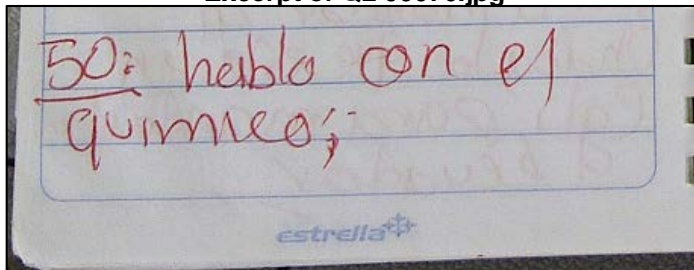 50: hablo con el
quimico;
estrella